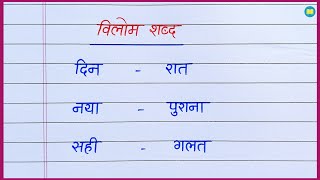 विलोम शब्द
दिन - रात
नया - पुराना
सही - गलत